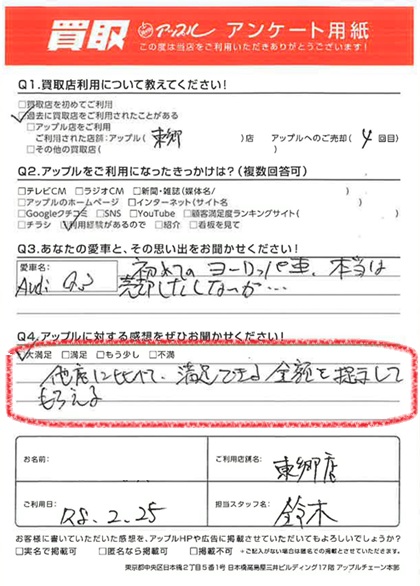 買取 アップル アンケート用紙
この度は当店をご利用いただきありがとうございます!
Q1.買取店利用について教えてください!
□買取店を初めてご利用
☑過去に買取店をご利用されたことがある
□アップル店をご利用
ご利用された店舗:アップル( 東郷 )店 アップルへのご売却( 4 回目)
□その他の買取店( )
Q2.アップルをご利用になったきっかけは?(複数回答可)
□テレビCM □ラジオCM □新聞・雑誌(媒体名/ )
□アップルのホームページ □インターネット(サイト名 )
□Googleクチコミ □SNS □YouTube □顧客満足度ランキングサイト( )
□チラシ ☑利用経験があるので □紹介 □看板を見て
Q3.あなたの愛車と、その思い出をお聞かせください!
愛車名:
Audi Q3
初めてのヨーロッパ車、本当は
売却したくしないが…
Q4.アップルに対する感想をぜひお聞かせください!
☑大満足 □満足 □もう少し □不満
他店に比べて、満足できる金額を提示して
もらえる
お名前:
ご利用店舗名:
東郷店
ご利用日:
R8.2.25
担当スタッフ名:
鈴木
お客様に書いていただいた感想を、アップルHPや広告に掲載させていただいてもよろしいでしょうか?
□実名で掲載可 □匿名なら掲載可 □掲載不可 *ご記入がない場合は匿名での掲載とさせていただきます。
東京都中央区日本橋2丁目5番1号 日本橋髙島屋三井ビルディング17階 アップルチェーン本部